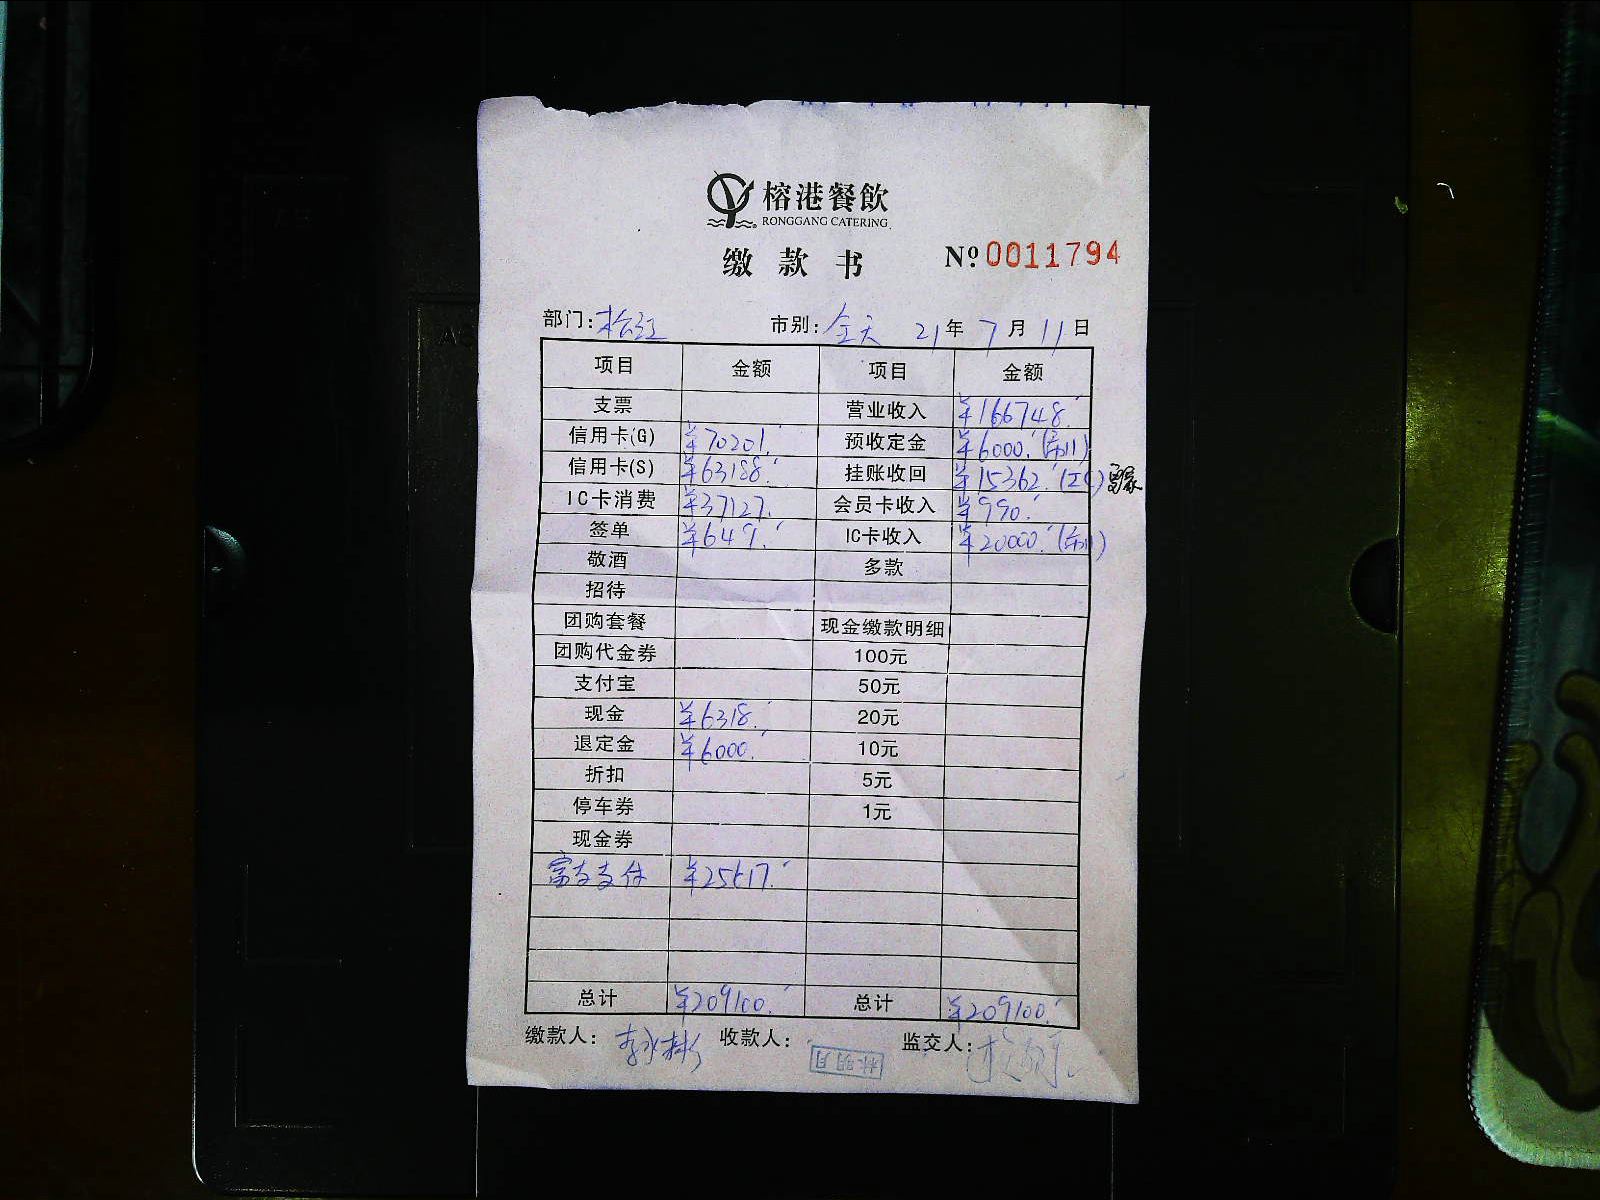 榕港餐飲
RONGGANG CATERING
缴款书 Nº 0011794
部门: 松江 市别: 全天 21年 7月 11日
项目 金额 项目 金额
支票 营业收入 ¥166748.
信用卡(G) ¥70201. 预收定金 ¥6000.
信用卡(S) ¥63188. 挂账收回 ¥15362.
IC卡消费 ¥37127. 会员卡收入 ¥990.
签单 ¥649. IC卡收入 ¥20000.
敬酒 多款
招待
团购套餐 现金缴款明细
团购代金券 100元
支付宝 50元
现金 ¥6318. 20元
退定金 ¥6000. 10元
折扣 5元
停车券 1元
现金券
富友支付 ¥25617.
总计 ¥209100. 总计 ¥209100.
缴款人: 李永彬 收款人: 林明月 监交人: